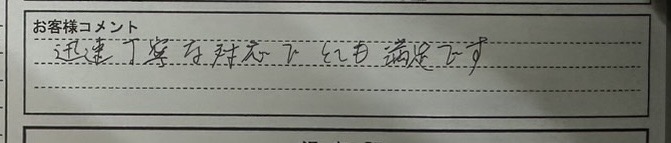 お客様コメント
迅速丁寧な対応でとても満足です